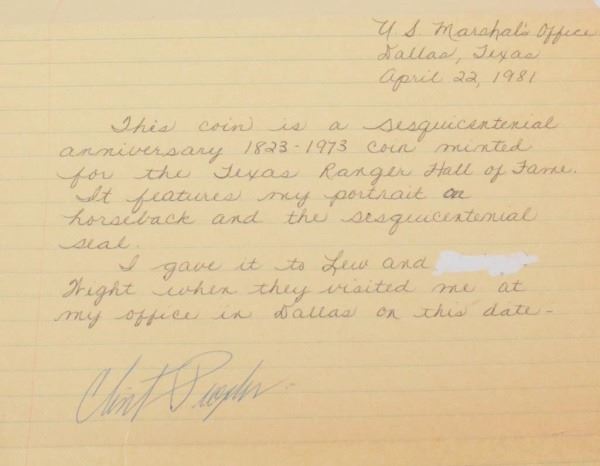 U.S. Marshal's Office
Dallas, Texas
April 22, 1981
This coin is a sesquicentenial
anniversary 1823-1973 coin minted
for the Texas Ranger Hall of Fame.
It features my portrait on
horseback and the sesquicentenial
seal.
I gave it to Lew and
Wight when they visited me at
my office in Dallas on this date-
Clint Peoples